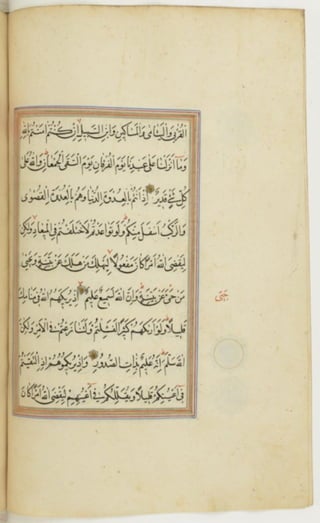 القربى واليتامى والمساكين وابن السبيل ان كنتم امنتم بالله
وما انزلنا على عبدنا يوم الفرقان يوم التقى الجمعان والله على
كل شئ قدير اذ انتم بالعدوة الدنيا وهم بالعدوة القصوى
والركب اسفل منكم ولو تواعدتم لاختلفتم في الميعاد ولكن
ليقضي الله امرا كان مفعولا ليهلك من هلك عن بينة ويحيى
من حي عن بينة وان الله لسميع عليم اذ يريكهم الله في منامك
قليلا ولو اريكهم كثيرا لفشلتم ولتنازعتم في الامر ولكن
الله سلم انه عليم بذات الصدور واذ يريكموهم اذ التقيتم
في اعينكم قليلا ويقللكم في اعينهم ليقضي الله امرا كان